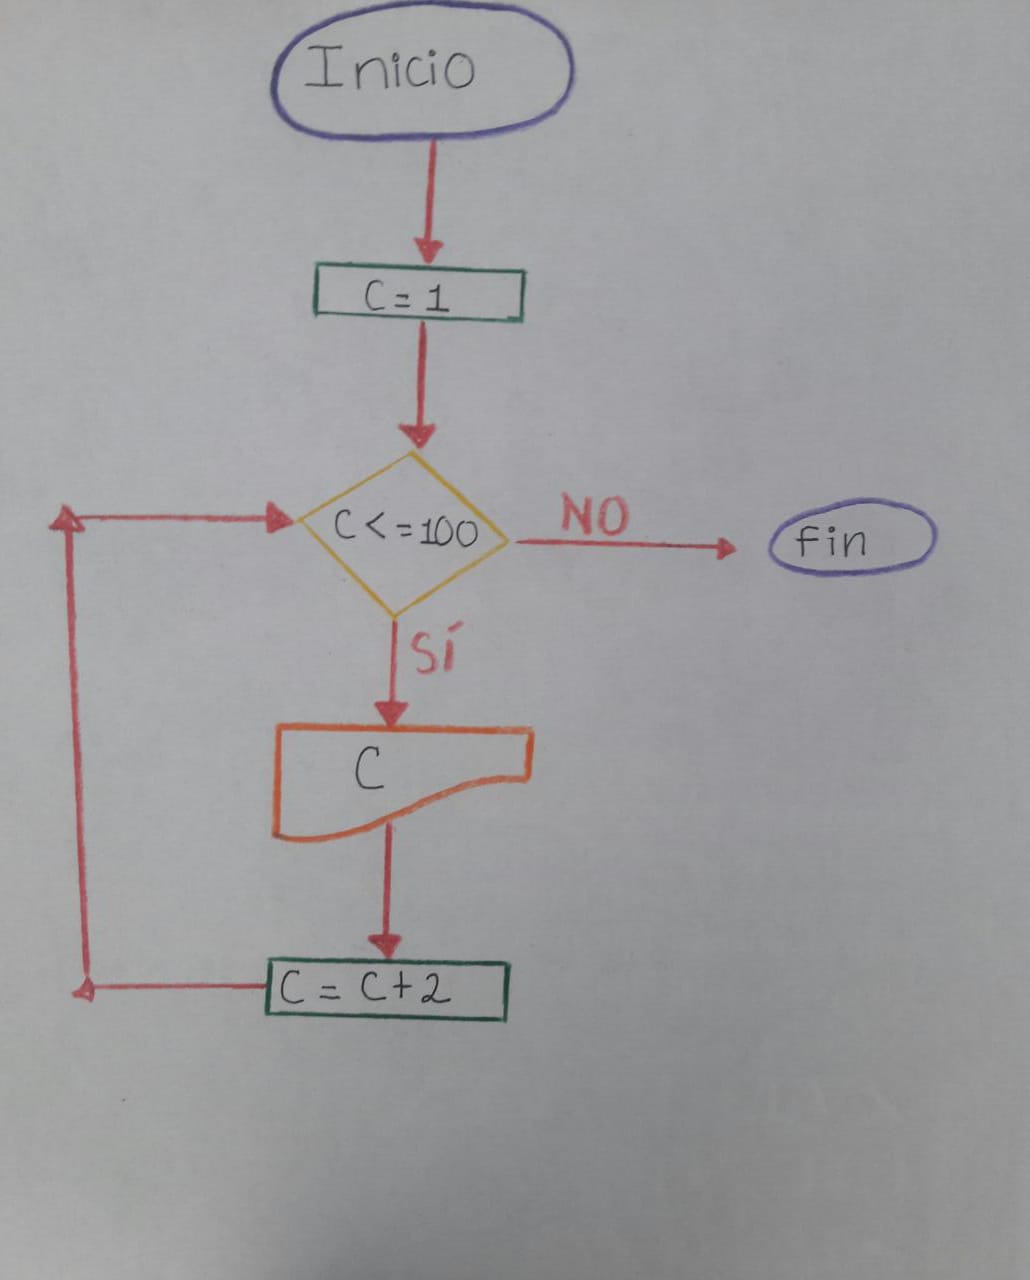 Inicio
C = 1
C <= 100
NO
fin
SÍ
C
C = C + 2